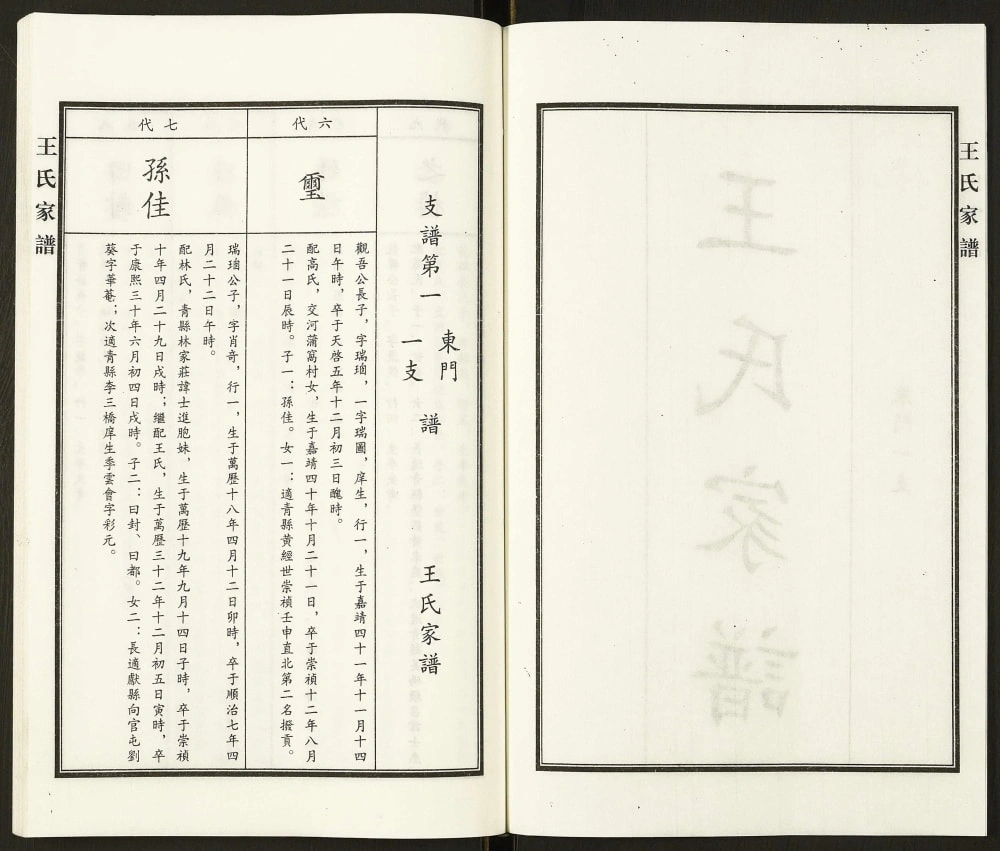 王氏家譜
支譜第一 東門一支 譜 王氏家譜
六代
璽
觀吾公長子，字瑞瑎，一字瑞圖，庠生，行一，生于嘉靖四十一年十一月十四
日午時，卒于天啓五年十二月初三日醜時。
配高氏，交河蒲窩村女，生于嘉靖四十年十月二十一日，卒于崇禎十二年八月
二十一日辰時。子一：孫佳。女一：適青縣黄經世崇禎壬申直北第二名撥貢。
七代
孫佳
瑞瑎公子，字肖奇，行一，生于萬歷十八年四月十二日卯時，卒于順治七年四
月二十二日午時。
配林氏，青縣林家莊諱士進胞妹，生于萬歷十九年九月十四日子時，卒于崇禎
十年四月二十九日戌時；繼配王氏，生于萬歷三十二年十二月初五日寅時，卒
于康熙三十年六月初四日戌時。子二：曰封、曰都。女二：長適獻縣向官屯劉
葵字華菴；次適青縣李三橋庠生季雲會字彩元。
王氏家譜